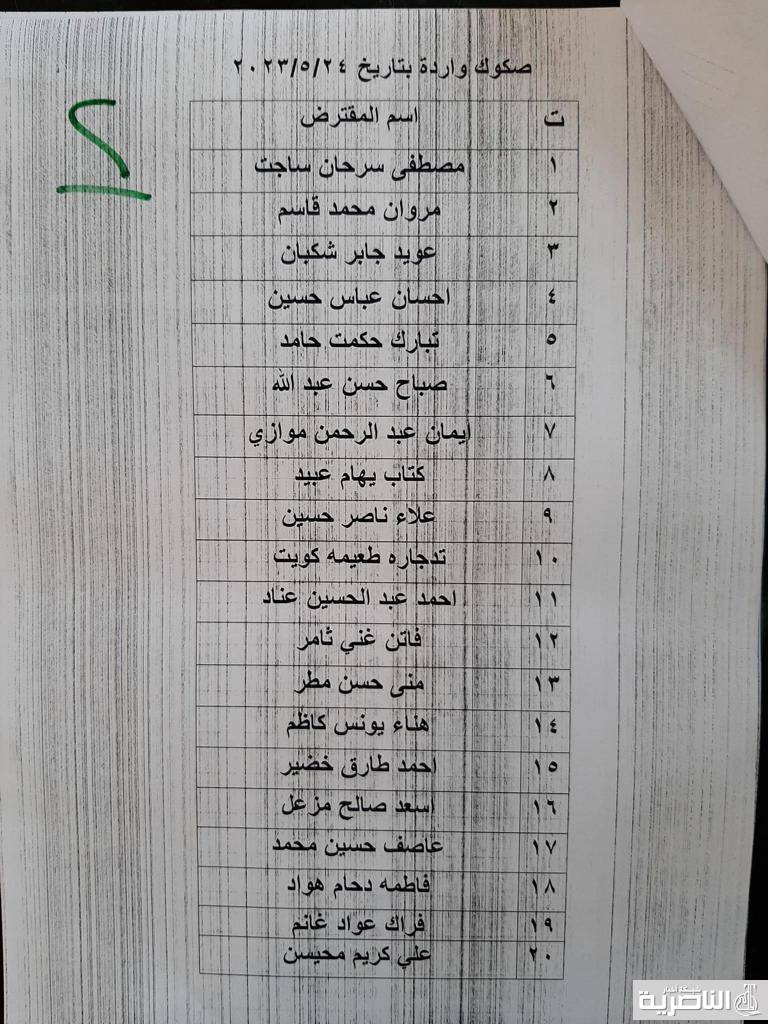 صكوك واردة بتاريخ ٢٠٢٣/٥/٢٤
ت اسم المقترض
١ مصطفى سرحان ساجت
٢ مروان محمد قاسم
٣ عويد جابر شكبان
٤ احسان عباس حسين
٥ تبارك حكمت حامد
٦ صباح حسن عبد الله
٧ ايمان عبد الرحمن موازي
٨ كتاب يهام عبيد
٩ علاء ناصر حسين
١٠ تدجاره طعيمه كويت
١١ احمد عبد الحسين عناد
١٢ فاتن غني ثامر
١٣ منى حسن مطر
١٤ هناء يونس كاظم
١٥ احمد طارق خضير
١٦ اسعد صالح مزعل
١٧ عاصف حسين محمد
١٨ فاطمه دحام هواد
١٩ فراك عواد غانم
٢٠ علي كريم محيسن
٢
شبكة أخبار
الناصرية